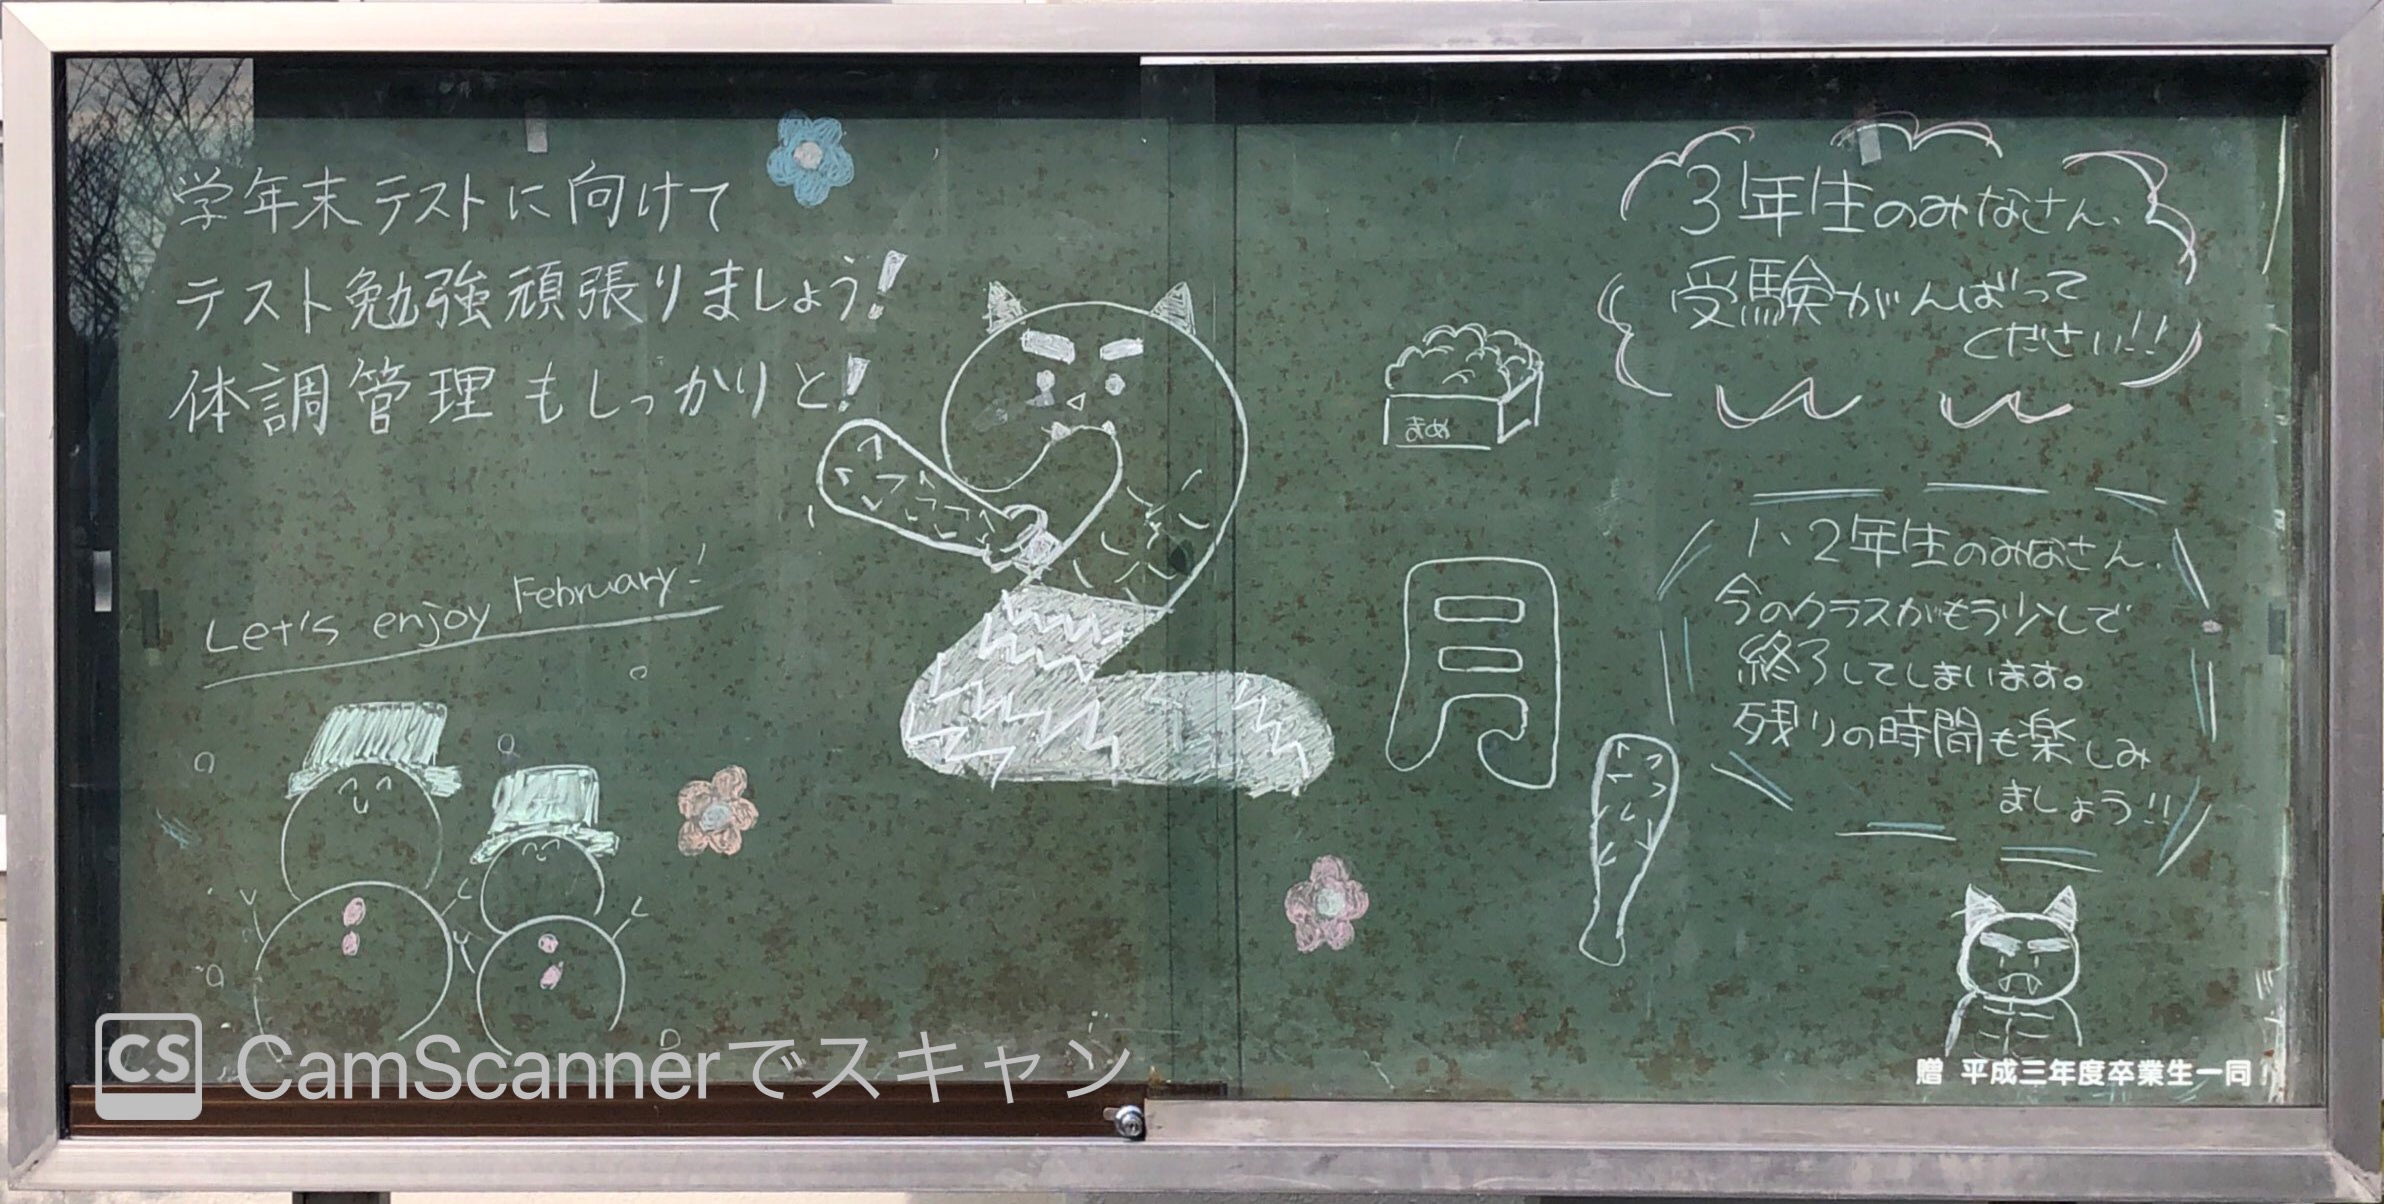 学年末テストに向けて
テスト勉強頑張りましょう!
体調管理もしっかりと!
Let's enjoy February!
2月
まめ
3年生のみなさん、
受験がんばって
ください!!
1、2年生のみなさん、
今のクラスがもう少しで
終了してしまいます。
残りの時間も楽しみ
ましょう!!
贈 平成三年度卒業生一同
CS CamScannerでスキャン